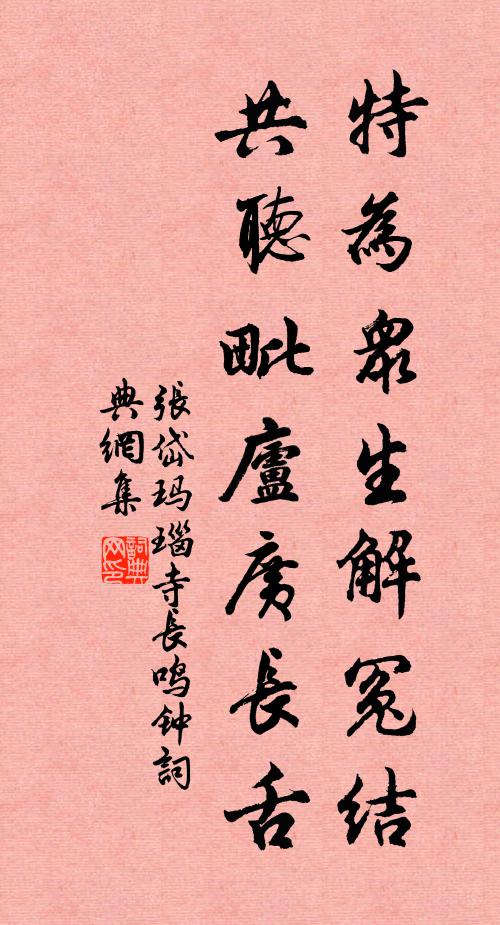 特為眾生解冤結
共聽毗廬廣長舌
張岱玛瑙寺長鸣钟詞
典網集
詞典
网印